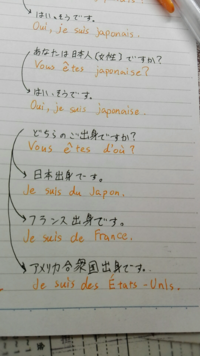 はい、そうです。
Oui, je suis japonais.
あなたは日本人(女性)ですか?
Vous êtes japonaise?
はい、そうです。
Oui, je suis japonaise.
どちらのご出身ですか?
Vous êtes d'où?
日本出身です。
Je suis du Japon.
フランス出身です。
Je suis de France.
アメリカ合衆国出身です.
Je suis des États-Unis.